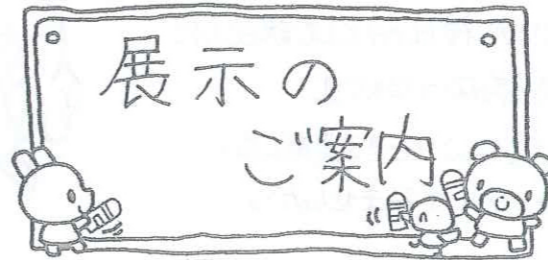 展示の
ご案内